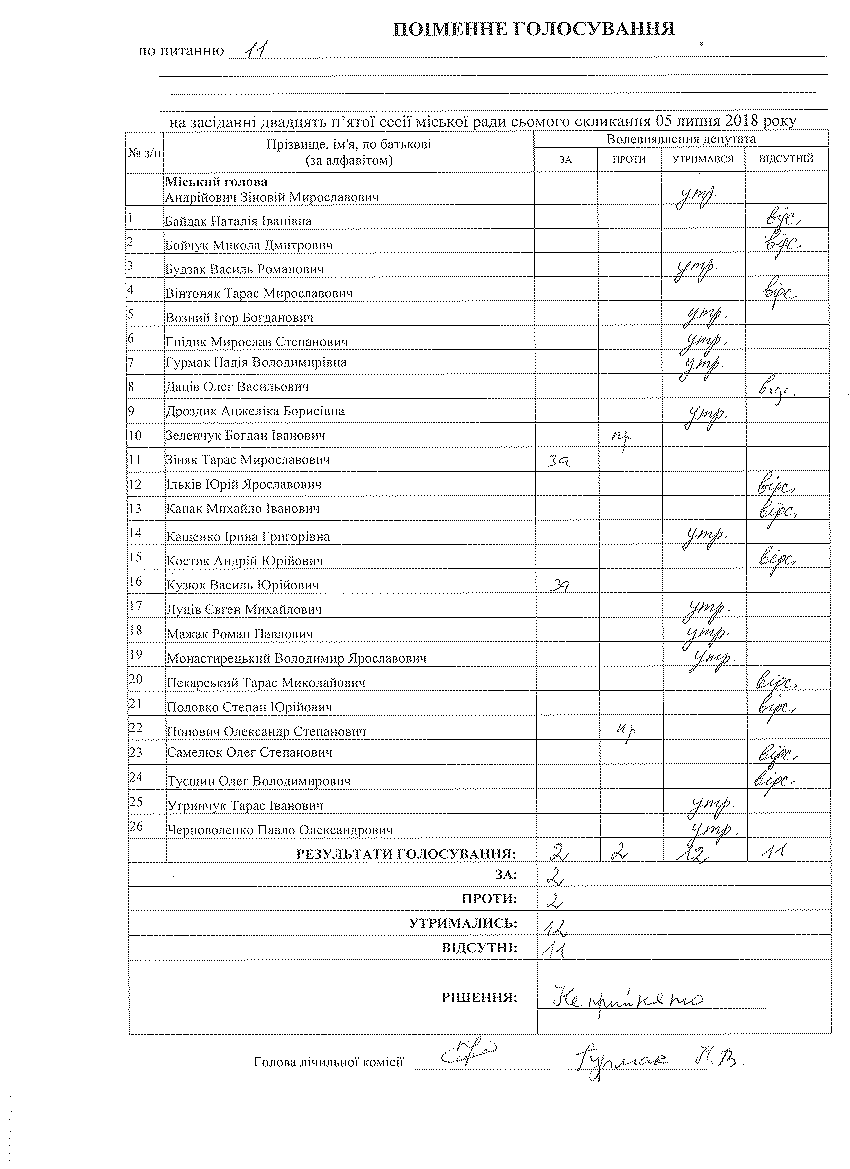 ПОІМЕННЕ ГОЛОСУВАННЯ
по питанню 11
на засіданні двадцять п'ятої сесії міської ради сьомого скликання 05 липня 2018 року
№ з/п Прізвище, ім'я, по батькові Волевиявлення депутата
(за алфавітом) ЗА ПРОТИ УТРИМАВСЯ ВІДСУТНІЙ
Міський голова
Андрійович Зіновій Мирославович утр.
1 Байдак Наталія Іванівна відс.
2 Бойчук Микола Дмитрович відс.
3 Будзак Василь Романович утр.
4 Вінтоняк Тарас Мирославович відс.
5 Возний Ігор Богданович утр.
6 Гнідик Мирослав Степанович утр.
7 Гурмак Надія Володимирівна утр.
8 Даців Олег Васильович відс.
9 Дроздик Анжеліка Борисівна утр.
10 Зеленчук Богдан Іванович пр
11 Зіняк Тарас Мирославович за
12 Ільків Юрій Ярославович відс.
13 Капак Михайло Іванович відс.
14 Кащенко Ірина Григорівна утр.
15 Костяк Андрій Юрійович відс.
16 Кузюк Василь Юрійович за
17 Луців Євген Михайлович утр.
18 Мажак Роман Павлович утр.
19 Монастирецький Володимир Ярославович утр.
20 Пекарський Тарас Миколайович відс.
21 Половко Степан Юрійович відс.
22 Попович Олександр Степанович пр
23 Самелюк Олег Степанович відс.
24 Тусщин Олег Володимирович відс.
25 Угринчук Тарас Іванович утр.
26 Черноволенко Павло Олександрович утр.
РЕЗУЛЬТАТИ ГОЛОСУВАННЯ: 2 2 12 11
ЗА: 2
ПРОТИ: 2
УТРИМАЛИСЬ: 12
ВІДСУТНІ: 11
РІШЕННЯ: Не прийнято
Голова лічильної комісії Гурмак Н.В.